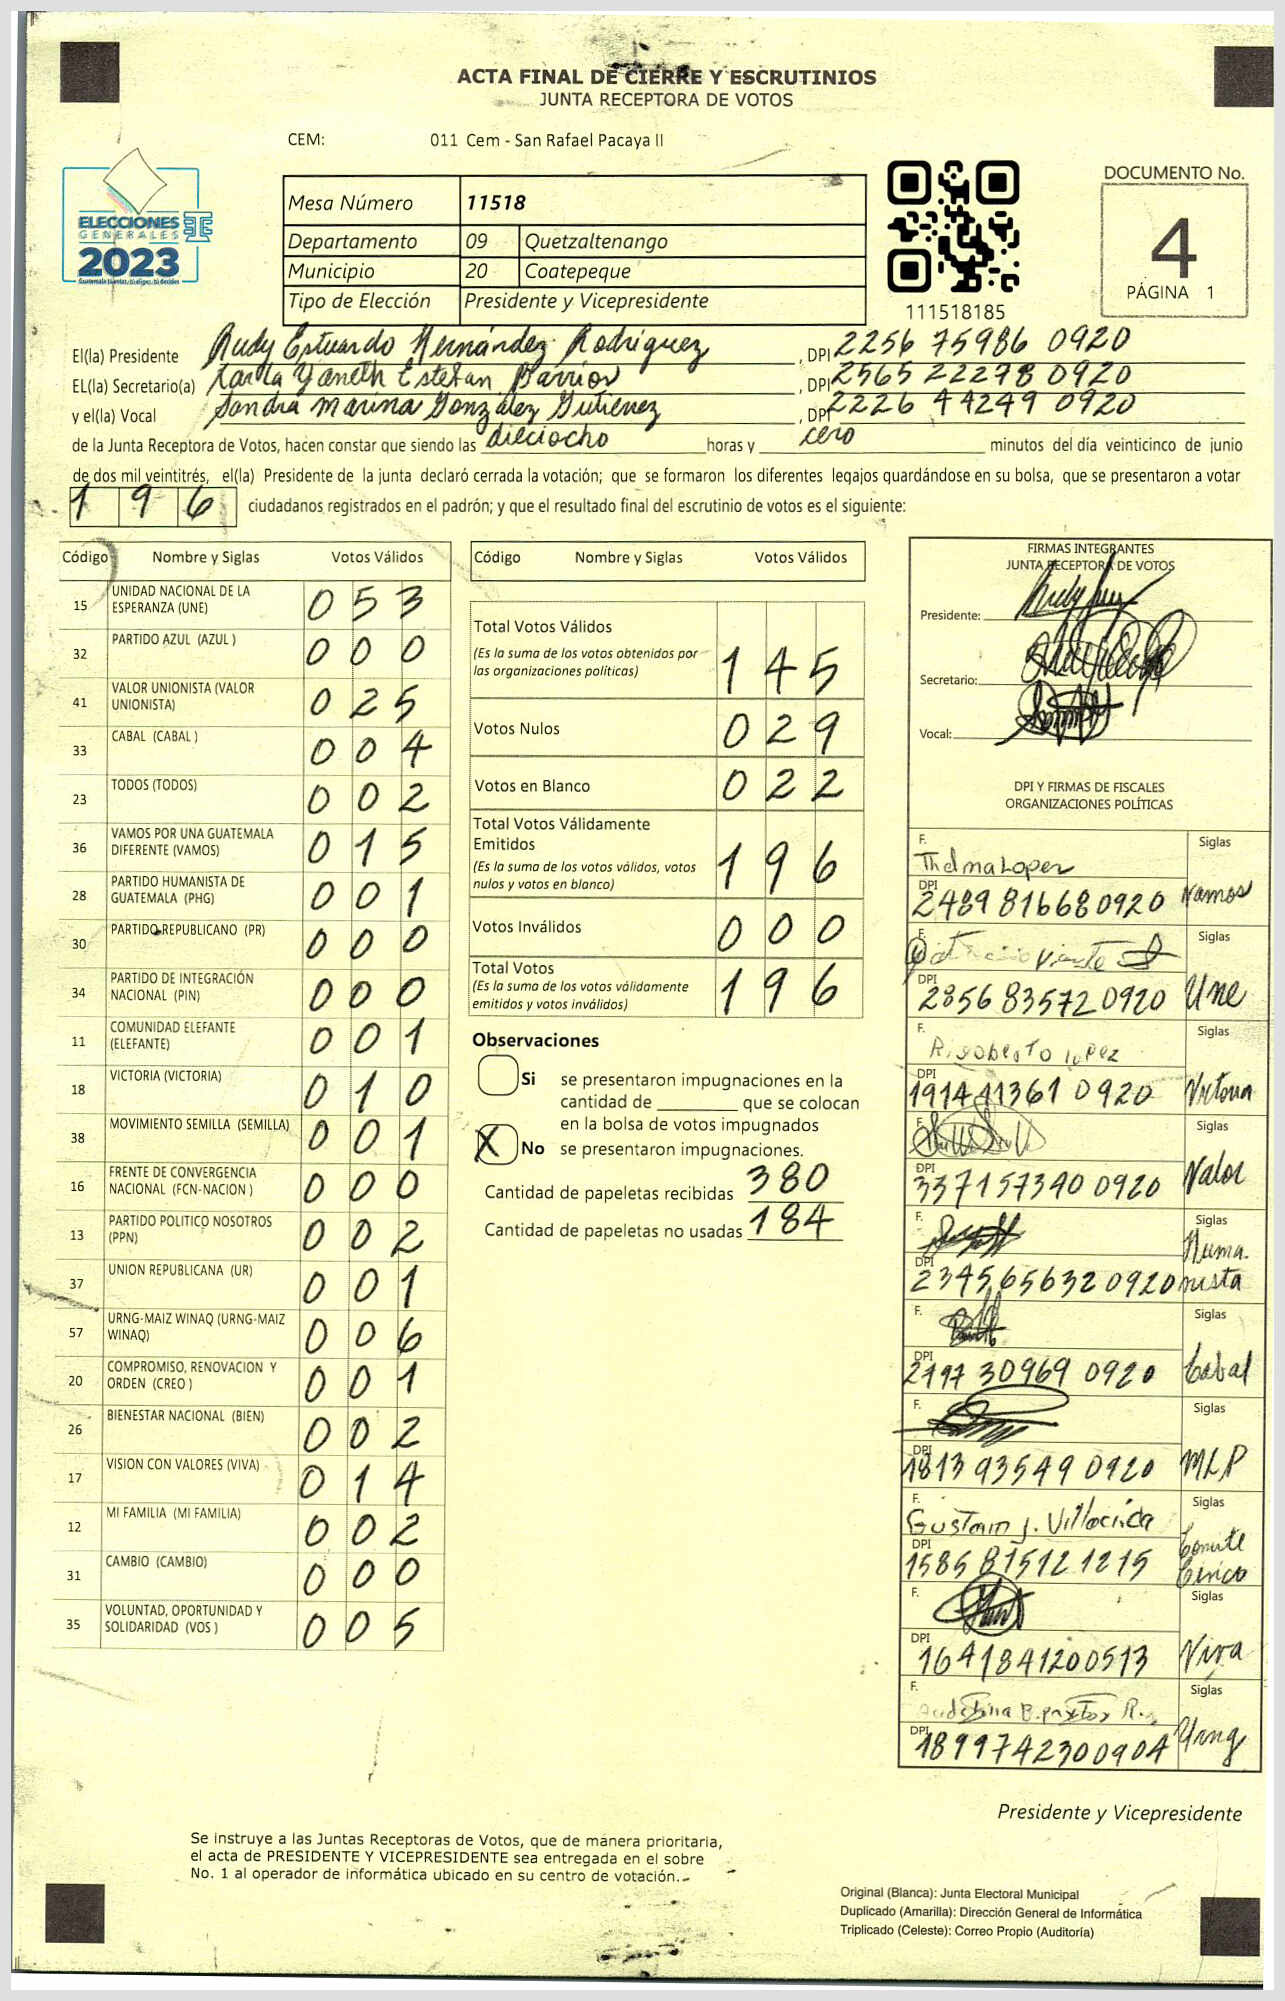 ACTA FINAL DE CIERRE Y ESCRUTINIOS
JUNTA RECEPTORA DE VOTOS
CEM: 011 Cem - San Rafael Pacaya II
ELECCIONES
GENERALES
2023
Mesa Número 11518
Departamento 09 Quetzaltenango
Municipio 20 Coatepeque
Tipo de Elección Presidente y Vicepresidente
111518185
DOCUMENTO No.
4
PÁGINA 1
El(la) Presidente Rudy Estuardo Hernández Rodríguez, DPI 2256 75986 0920
EL(la) Secretario(a) Karla Yaneth Esteban Barrios, DPI 2565 22278 0920
y el(la) Vocal Sandra Marina González Gutierrez, DPI 2226 44249 0920
de la Junta Receptora de Votos, hacen constar que siendo las dieciocho horas y cero minutos del día veinticinco de junio
de dos mil veintitrés, el(la) Presidente de la junta declaró cerrada la votación; que se formaron los diferentes legajos guardándose en su bolsa, que se presentaron a votar
196 ciudadanos registrados en el padrón; y que el resultado final del escrutinio de votos es el siguiente:
Código Nombre y Siglas Votos Válidos
15 UNIDAD NACIONAL DE LA ESPERANZA (UNE) 053
32 PARTIDO AZUL (AZUL ) 000
41 VALOR UNIONISTA (VALOR UNIONISTA) 025
33 CABAL (CABAL ) 004
23 TODOS (TODOS) 002
36 VAMOS POR UNA GUATEMALA DIFERENTE (VAMOS) 015
28 PARTIDO HUMANISTA DE GUATEMALA (PHG) 001
30 PARTIDO REPUBLICANO (PR) 000
34 PARTIDO DE INTEGRACIÓN NACIONAL (PIN) 000
11 COMUNIDAD ELEFANTE (ELEFANTE) 001
18 VICTORIA (VICTORIA) 010
38 MOVIMIENTO SEMILLA (SEMILLA) 001
16 FRENTE DE CONVERGENCIA NACIONAL (FCN-NACION ) 000
13 PARTIDO POLITICO NOSOTROS (PPN) 002
37 UNION REPUBLICANA (UR) 001
57 URNG-MAIZ WINAQ (URNG-MAIZ WINAQ) 006
20 COMPROMISO, RENOVACION Y ORDEN (CREO ) 001
26 BIENESTAR NACIONAL (BIEN) 002
17 VISION CON VALORES (VIVA) 014
12 MI FAMILIA (MI FAMILIA) 002
31 CAMBIO (CAMBIO) 000
35 VOLUNTAD, OPORTUNIDAD Y SOLIDARIDAD (VOS ) 005
Código Nombre y Siglas Votos Válidos
Total Votos Válidos
(Es la suma de los votos obtenidos por las organizaciones políticas) 145
Votos Nulos 029
Votos en Blanco 022
Total Votos Válidamente Emitidos
(Es la suma de los votos válidos, votos nulos y votos en blanco) 196
Votos Inválidos 000
Total Votos
(Es la suma de los votos válidamente emitidos y votos inválidos) 196
Observaciones
Si se presentaron impugnaciones en la
cantidad de ________ que se colocan
en la bolsa de votos impugnados
X No se presentaron impugnaciones.
Cantidad de papeletas recibidas 380
Cantidad de papeletas no usadas 184
FIRMAS INTEGRANTES
JUNTA RECEPTORA DE VOTOS
Presidente:
Secretario:
Vocal:
DPI Y FIRMAS DE FISCALES
ORGANIZACIONES POLÍTICAS
F. Thelma Lopez Siglas
DPI 2489 81668 0920 Vamos
F. Vicente Siglas
DPI 2856 83572 0920 Une
F. Rigoberto Lopez Siglas
DPI 1914 41361 0920 Victoria
F. Siglas
DPI 3371 57340 0920 Valor
F. Siglas
DPI 2345 65632 0920 Humanista
F. Siglas
DPI 2197 30969 0920 Cabal
F. Siglas
DPI 1813 93549 0920 MLP
F. J. Siglas
DPI 1585 81512 1215 Comite Civico
F. Siglas
DPI 1641 84120 0513 Viva
F. Siglas
DPI 1899 74230 0904 Urng
Presidente y Vicepresidente
Se instruye a las Juntas Receptoras de Votos, que de manera prioritaria,
el acta de PRESIDENTE Y VICEPRESIDENTE sea entregada en el sobre
No. 1 al operador de informática ubicado en su centro de votación.
Original (Blanca): Junta Electoral Municipal
Duplicado (Amarilla): Dirección General de Informática
Triplicado (Celeste): Correo Propio (Auditoría)